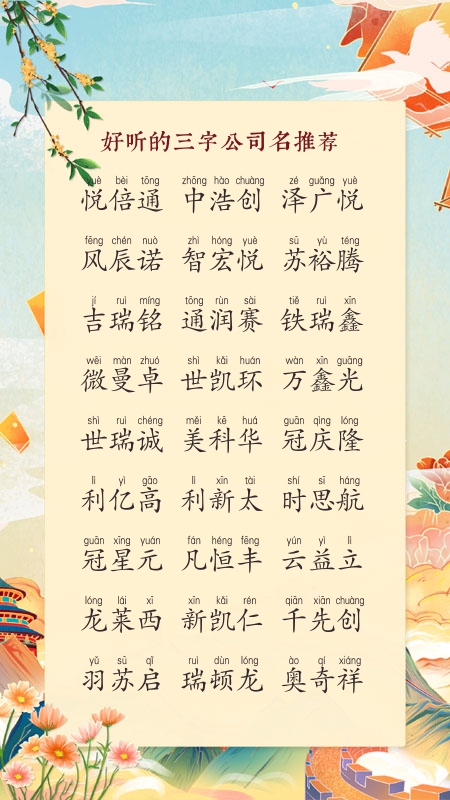 好听的三字公司名推荐
yuè bèi tōng zhōng hào chuàng zé guǎng yuè
悦倍通 中浩创 泽广悦
fēng chén nuò zhì hóng yuè sū yù téng
风辰诺 智宏悦 苏裕腾
jí ruì míng tōng rùn sài tiě ruì xīn
吉瑞铭 通润赛 铁瑞鑫
wēi màn zhuó shì kǎi huán wàn xīn guāng
微曼卓 世凯环 万鑫光
shì ruì chéng měi kē huá guān qìng lóng
世瑞诚 美科华 冠庆隆
lì yì gāo lì xīn tài shí sī háng
利亿高 利新太 时思航
guān xīng yuán fán héng fēng yún yì lì
冠星元 凡恒丰 云益立
lóng lái xī xīn kǎi rén qiān xiān chuàng
龙莱西 新凯仁 千先创
yǔ sū qǐ ruì dùn lóng ào qí xiáng
羽苏启 瑞顿龙 奥奇祥